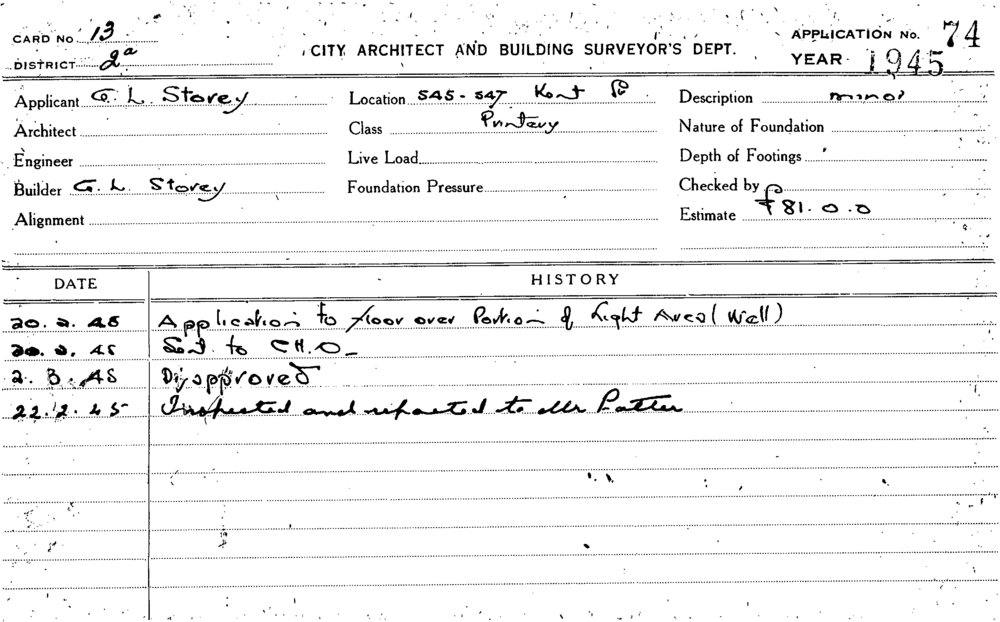 CARD No. 13
DISTRICT 2a
CITY ARCHITECT AND BUILDING SURVEYOR'S DEPT.
APPLICATION No. 74
YEAR 1945
Applicant G. L. Storey
Location 545-547 Kent St
Description minor
Architect
Class Printery
Nature of Foundation
Engineer
Live Load
Depth of Footings
Builder G. L. Storey
Foundation Pressure
Checked by
Alignment
Estimate £81.0.0
DATE HISTORY
20.2.45 Application to floor over Portion of Light Area (Well)
20.2.45 Sent to C.H.O.
2.3.45 Disapproved
22.2.45 Inspected and reported to Mr